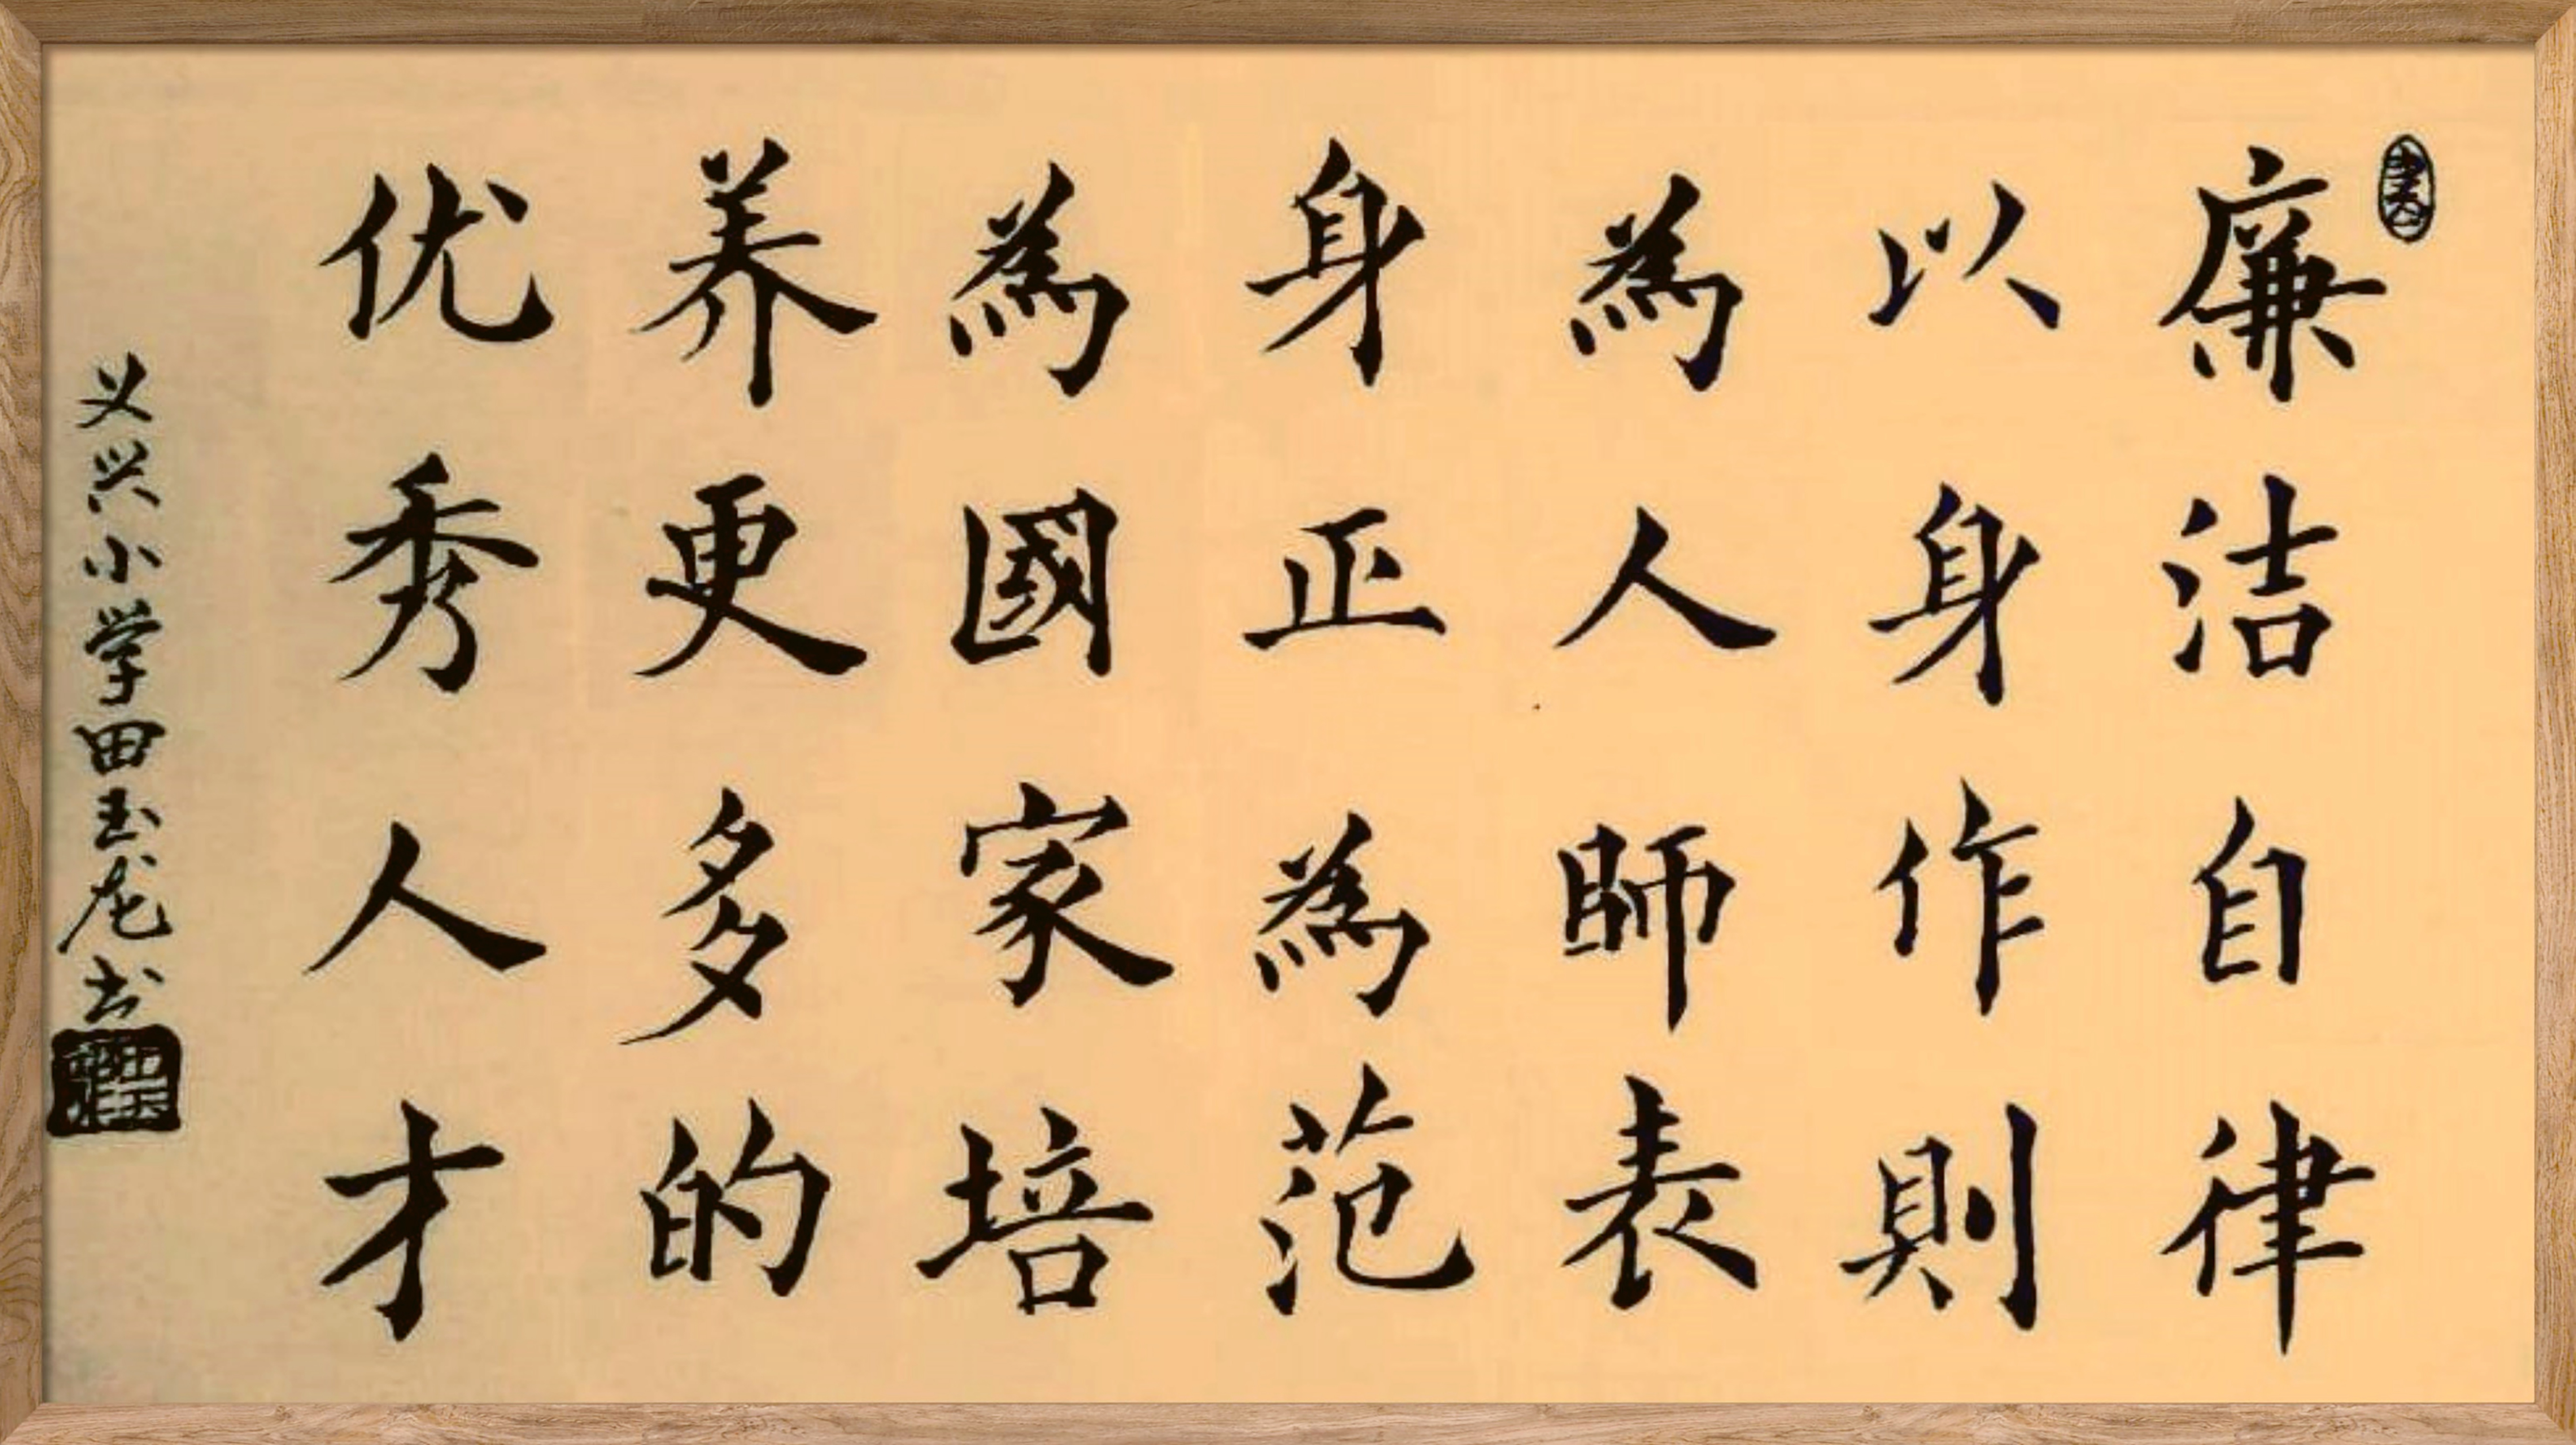 廉洁自律
以身作則
為人師表
身正為范
為國家培
养更多的
优秀人才
义兴小学田玉龙书